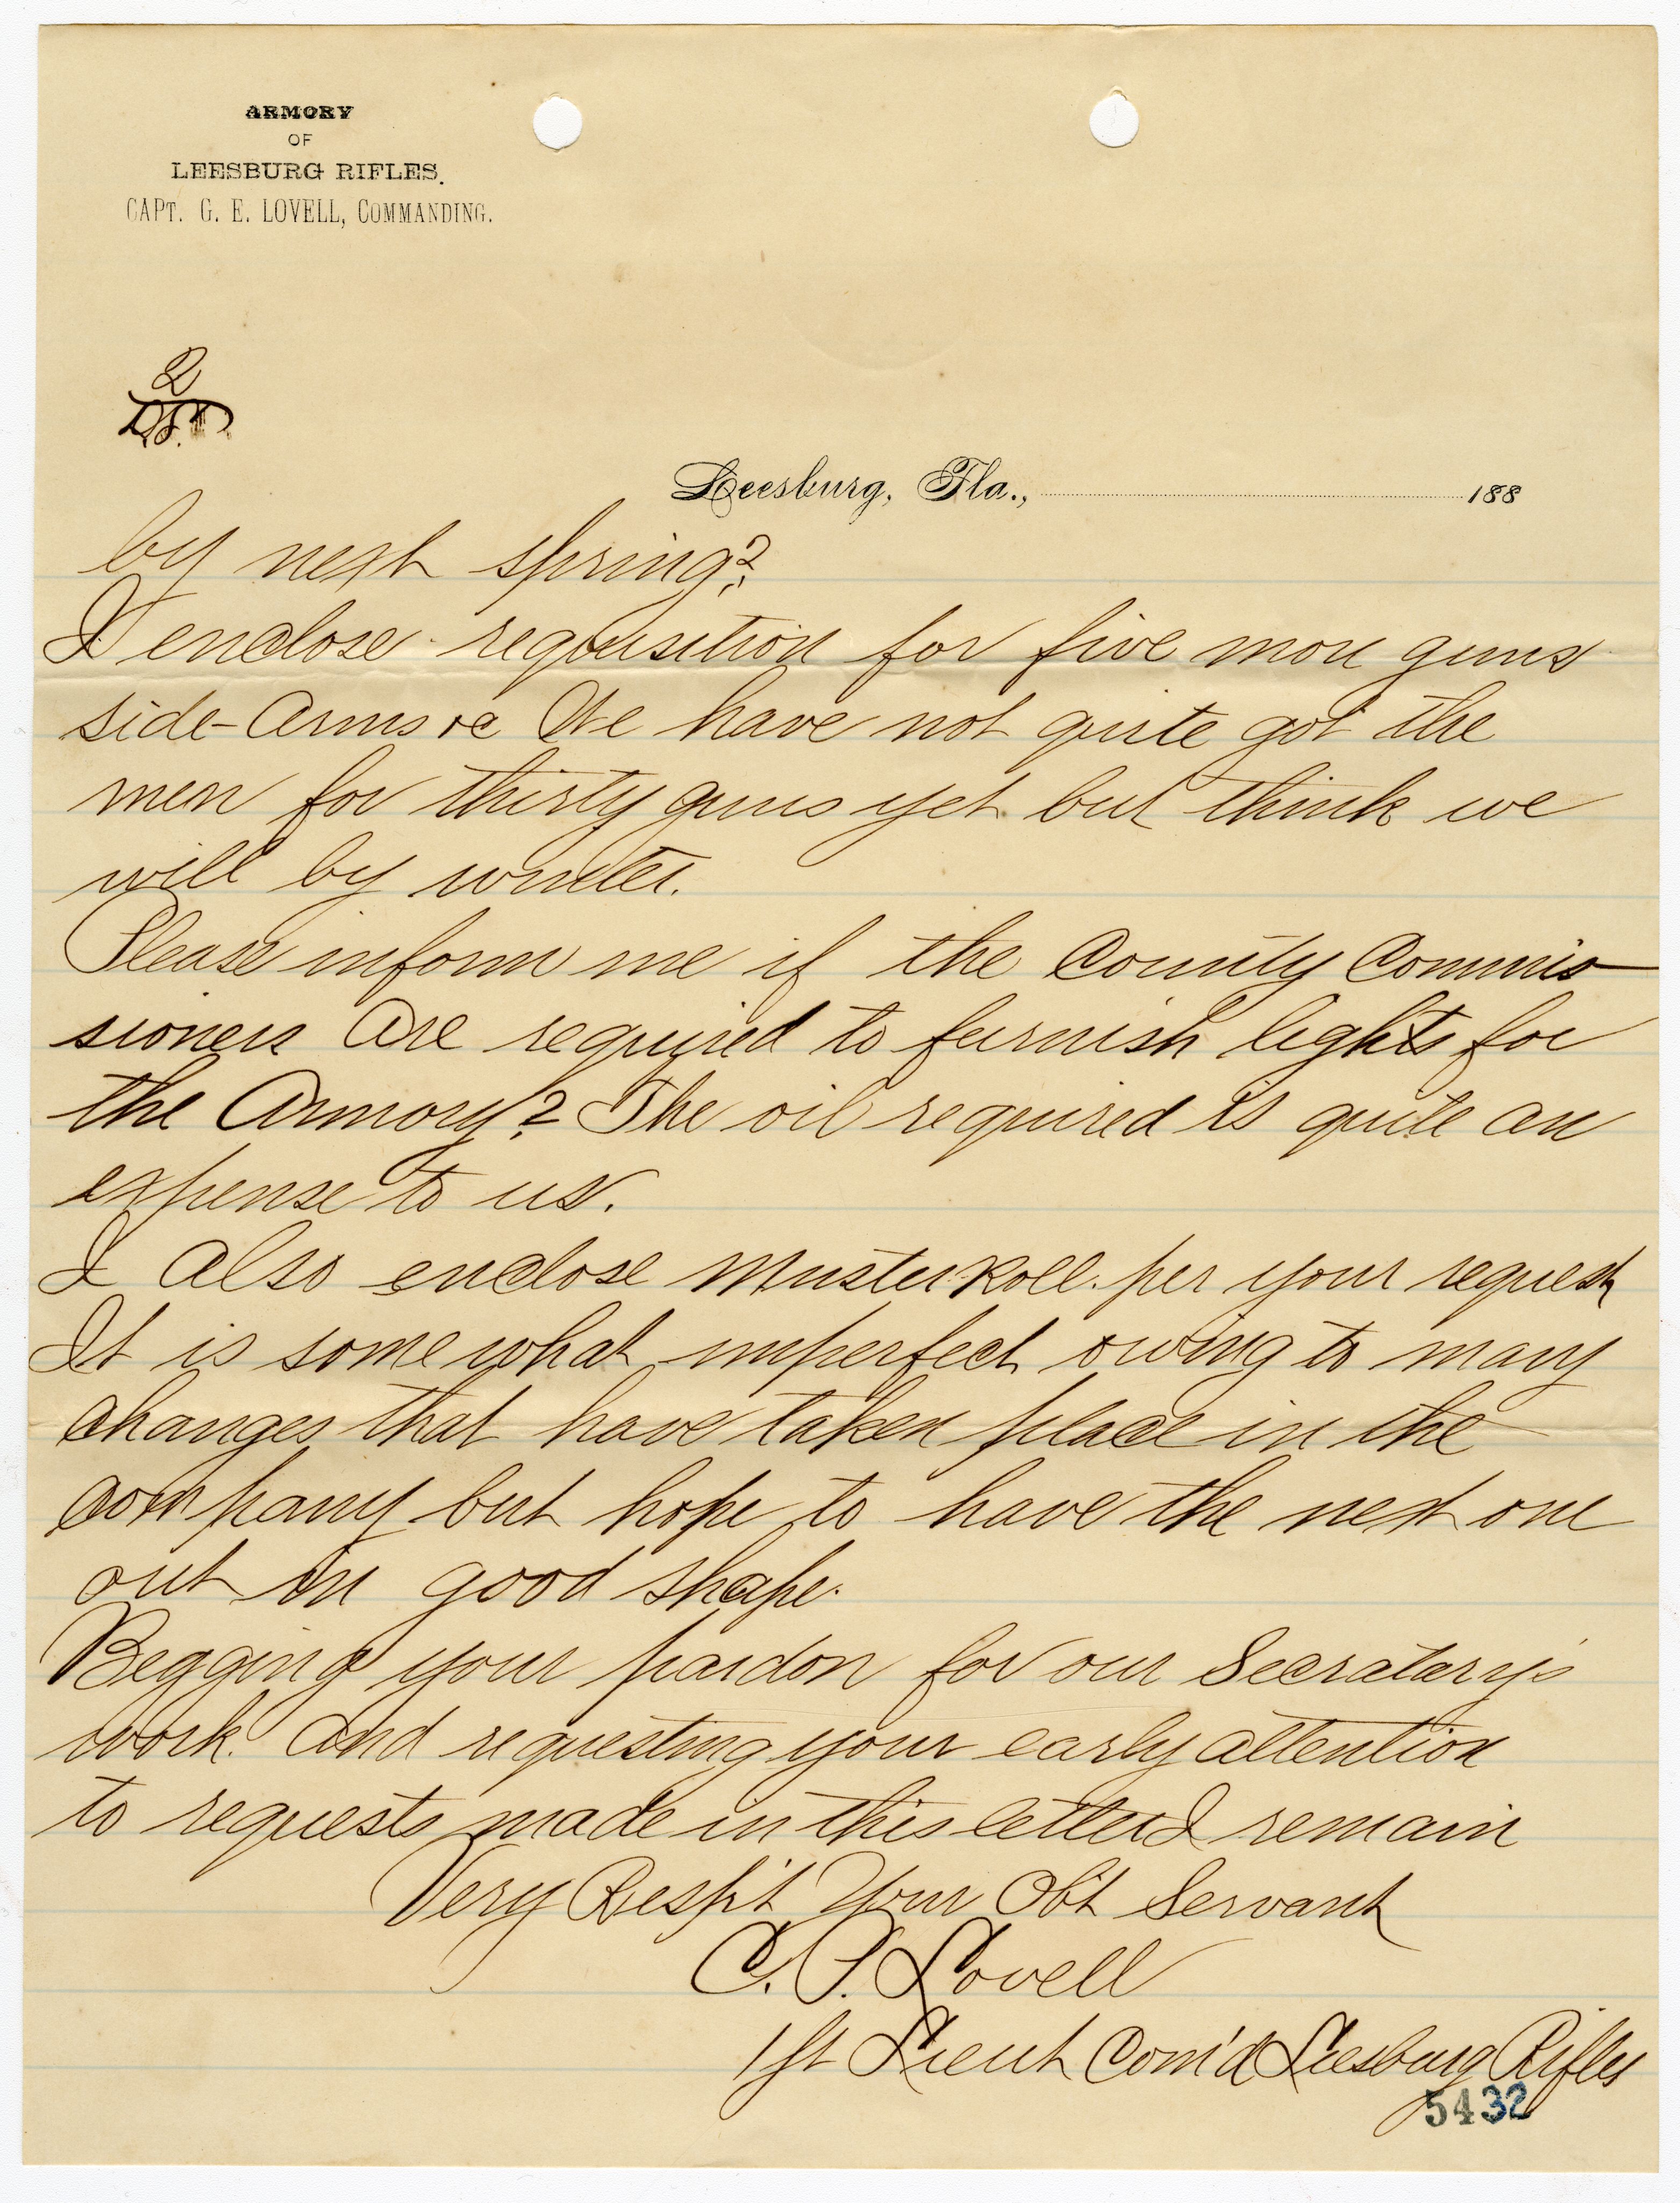 ARMORY
OF
LEESBURG RIFLES.
CAPT. G. E. LOVELL, COMMANDING.
2
Leesburg, Fla., 188
by next spring?
I enclose requisition for five more guns
side-Arms &c We have not quite got the
men for thirty guns yet but think we
will by winter.
Please inform me if the County Commis-
sioners Are required to furnish lights for
the Armory? The oil required is quite an
expense to us.
I also enclose Muster Roll. per your request
It is somewhat imperfect owing to many
changes that have taken place in the
company but hope to have the next one
out in good shape.
Begging your pardon for our Secratary's
work. And requesting your early attention
to requests made in this letter I remain
Very Resp't Your Obt Servant
C. P. Lovell
1st Lieut Com'd Leesburg Rifles
5432